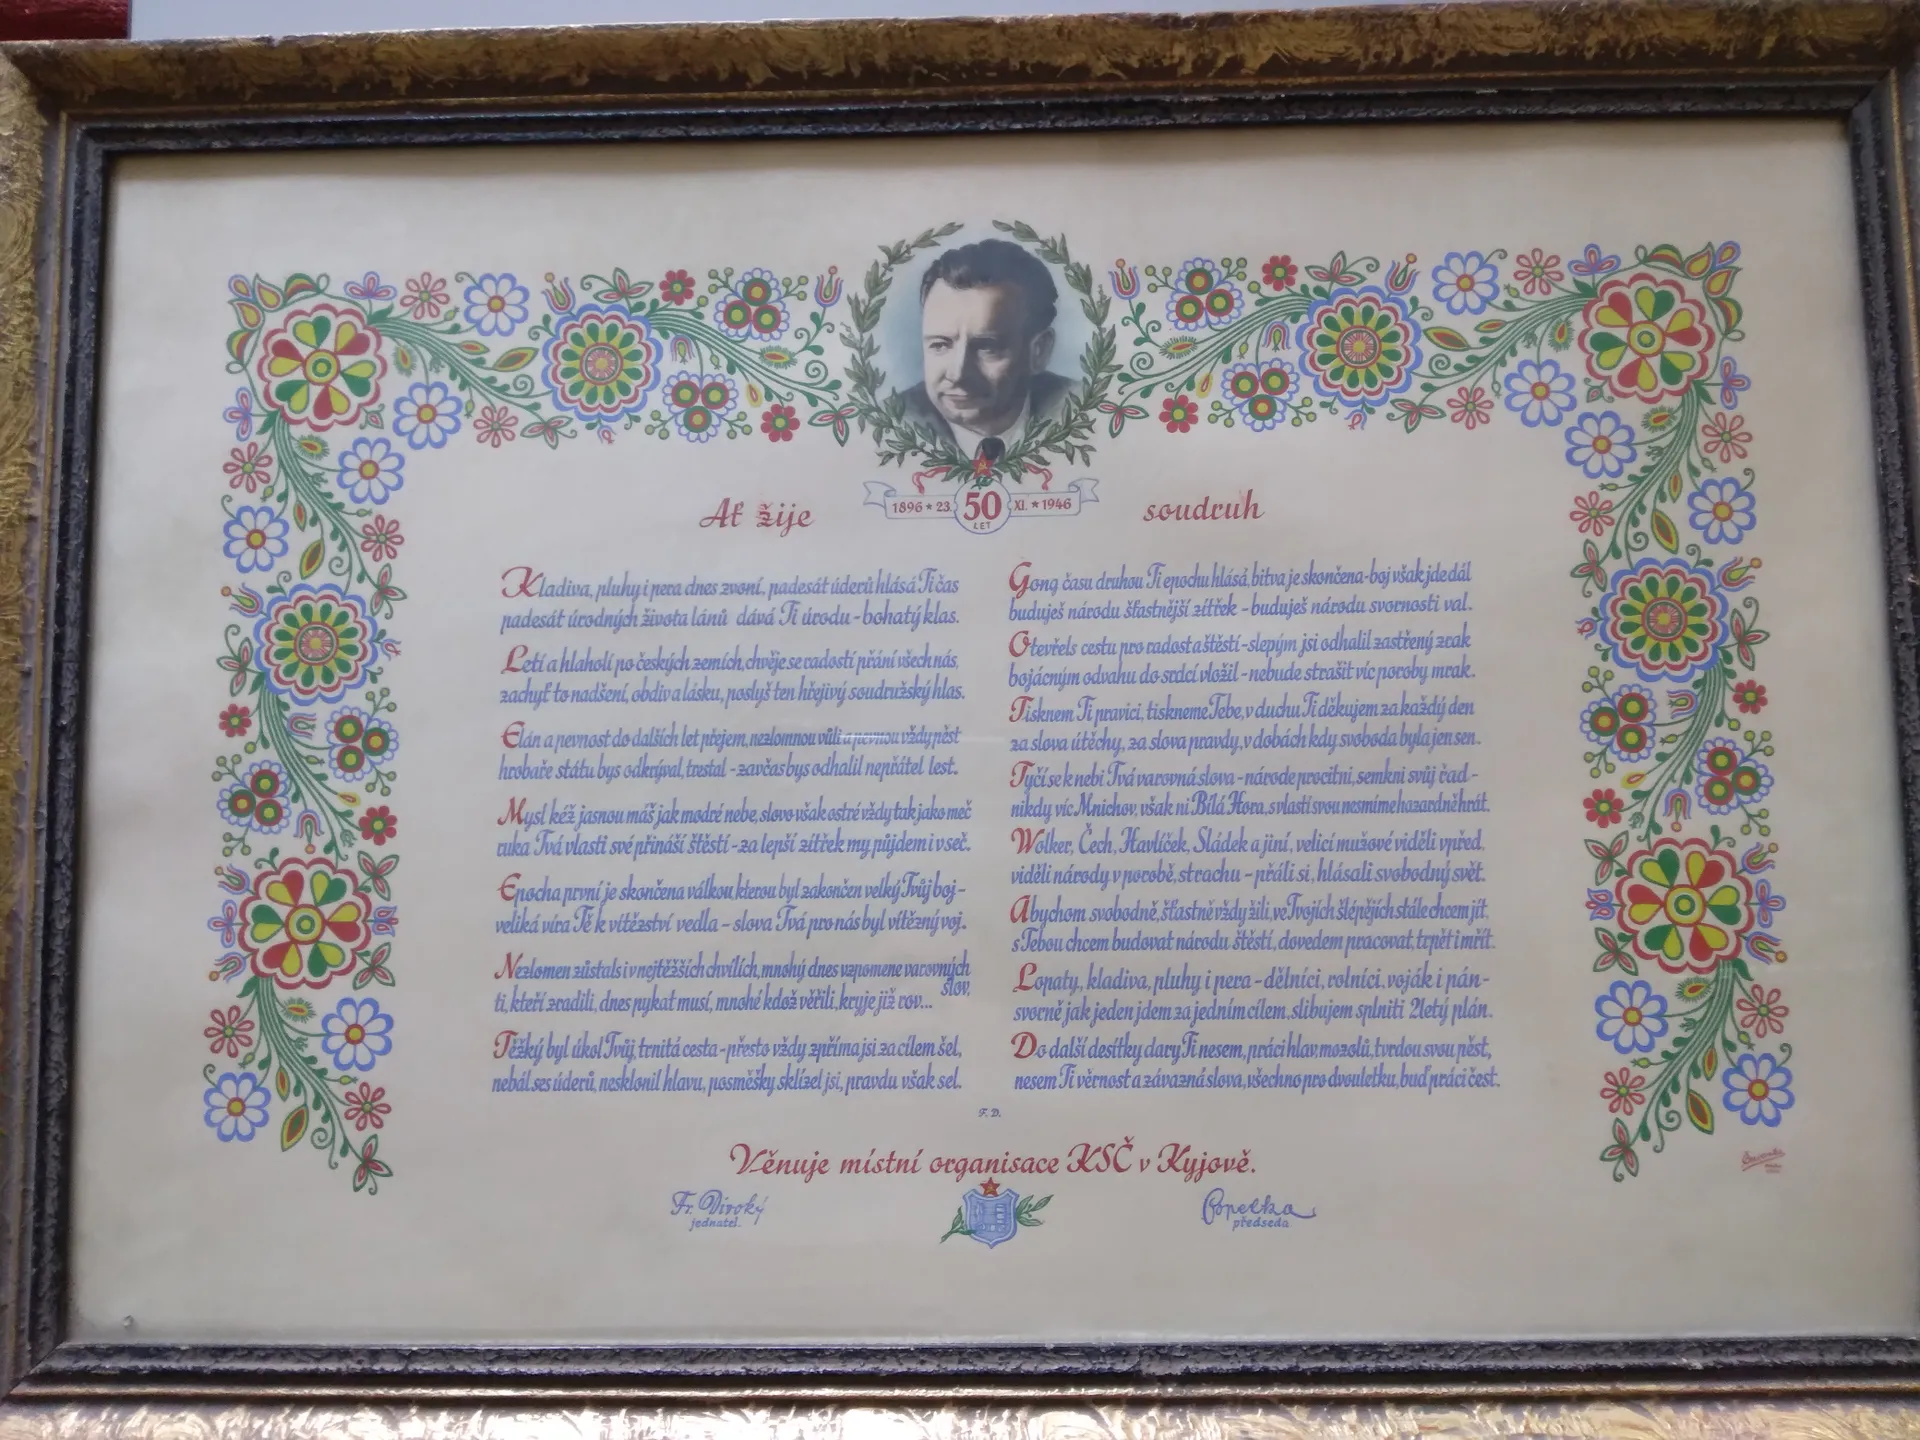 Ať žije soudruh
1896 ★ 23. 50 XI. ★ 1946
LET
Kladiva, pluhy i pera dnes zvoní, padesát úderů hlásá Ti čas
padesát úrodných života lánů dává Ti úrodu - bohatý klas.
Letí a hlaholí po českých zemích, chvěje se radostí přání všech nás,
zachyť to nadšení, obdiv a lásku, poslyš ten hřejivý soudružský hlas.
Elán a pevnost do dalších let přejem, nezlomnou vůli a pevnou vždy pěst
hrobaře státu bys odkrýval, trestal - zavčas bys odhalil nepřátel lest.
Mysl kéž jasnou máš jak modré nebe, slovo však ostré vždy tak jako meč
ruka Tvá vlasti své přináší štěstí - za lepší zítřek my půjdem i v seč.
Epocha první je skončena válkou, kterou byl zakončen velký Tvůj boj -
veliká víra Tě k vítězství vedla - slova Tvá pro nás byl vítězný voj.
Nezlomen zůstals i v nejtěžších chvílích, mnohý dnes vzpomene varovných
slov,
ti, kteří zradili, dnes pykat musí, mnohé kdož věřili, kryje již rov...
Těžký byl úkol Tvůj, trnitá cesta - přesto vždy zpříma jsi za cílem šel,
nebál ses úderů, nesklonil hlavu, posměšky sklízel jsi, pravdu však sel.
Gong času druhou Ti epochu hlásá, bitva je skončena - boj však jde dál
buduješ národu šťastnější zítřek - buduješ národu svornosti val.
Otevřels cestu pro radost a štěstí - slepým jsi odhalil zastřený zrak
bojácným odvahu do srdcí vložil - nebude strašit víc poroby mrak.
Tisknem Ti pravici, tiskneme Tebe, v duchu Ti děkujem za každý den
za slova útěchy, za slova pravdy, v dobách kdy svoboda byla jen sen.
Tyčí se k nebi Tvá varovná slova - národe procitni, semkni svůj řad -
nikdy víc Mnichov, však ni Bílá Hora, s vlastí svou nesmíme hazardně hrát.
Wolker, Čech, Havlíček, Sládek a jiní, velicí mužové viděli vpřed,
viděli národy v porobě, strachu - přáli si, hlásali svobodný svět.
Abychom svobodně, šťastně vždy žili, ve Tvojích šlépějích stále chcem jít,
s Tebou chcem budovat národu štěstí, dovedem pracovat, trpět i mřít.
Lopaty, kladiva, pluhy i pera - dělníci, rolníci, voják i pán -
svorně jak jeden jdem za jedním cílem, slibujem splniti 2letý plán.
Do další desítky dary Ti nesem, práci hlav, mozolů, tvrdou svou pěst,
nesem Ti věrnost a závazná slova, všechno pro dvouletku, buď práci čest.
F. D.
Věnuje místní organisace KSČ v Kyjově.
Fr. Divoký
jednatel.
Popelka
předseda